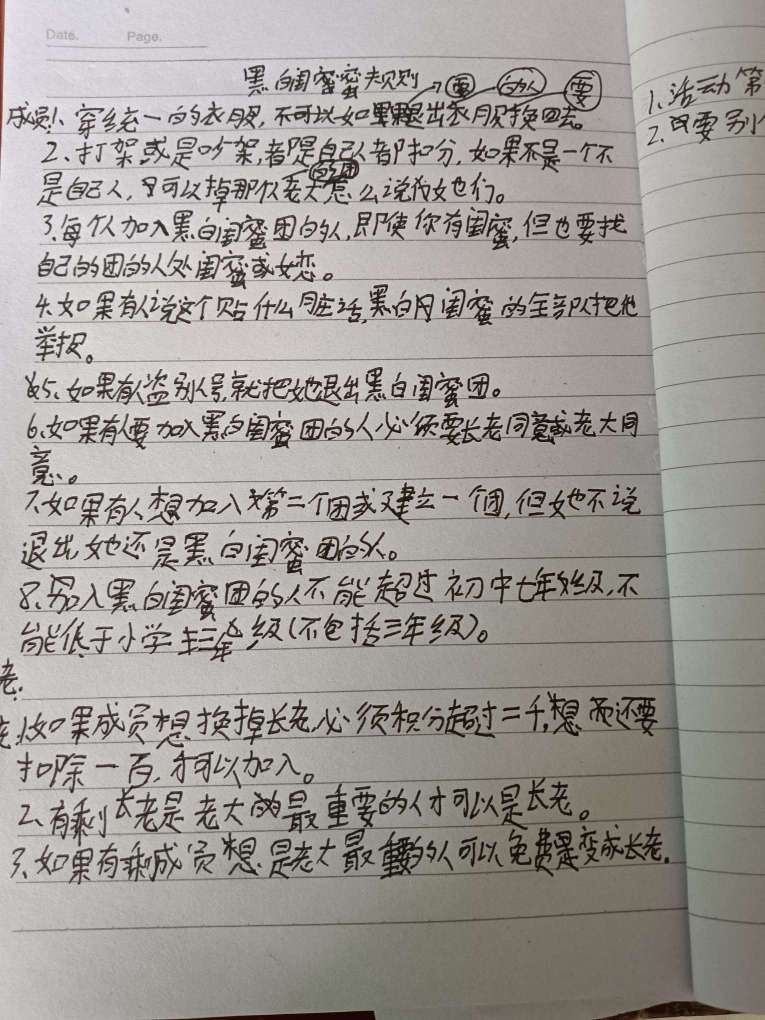 Date. Page.
黑白闺蜜蜜规则 要 的人 要
成员1、穿统一的衣服,不可以如果退出衣服换回去。
2、打架或是吵架,都是自己人都扣分,如果不是一个不
的团
是自己人,可以掉那个老大怎么说她们。
3、每个人加入黑白闺蜜团的人,即使你有闺蜜,但也要找
自己的团的人处闺蜜或女恋。
4、如果有人说这个贴什么脏话,黑白闺蜜的全部人把他
举报。
5、如果有人盗别人号,就把她退出黑白闺蜜团。
6、如果有人要加入黑白闺蜜团的人,必须要长老同意或老大同
意。
7、如果有人想加入第二个团或建立一个团,但她不说
退出她还是黑白闺蜜团的人。
8、加入黑白闺蜜团的人不能超过初中七年级,不
能低于小学三年级(不包括三年级)。
老.
1、如果成员想换掉长老,必须积分超过二千,想而还要
扣除一百,才可以加入。
2、有剩长老是老大的最重要的人才可以是长老。
3、如果有剩成员想是老大最重要的人可以免费是变成长老.
1、活动第
2、只要别